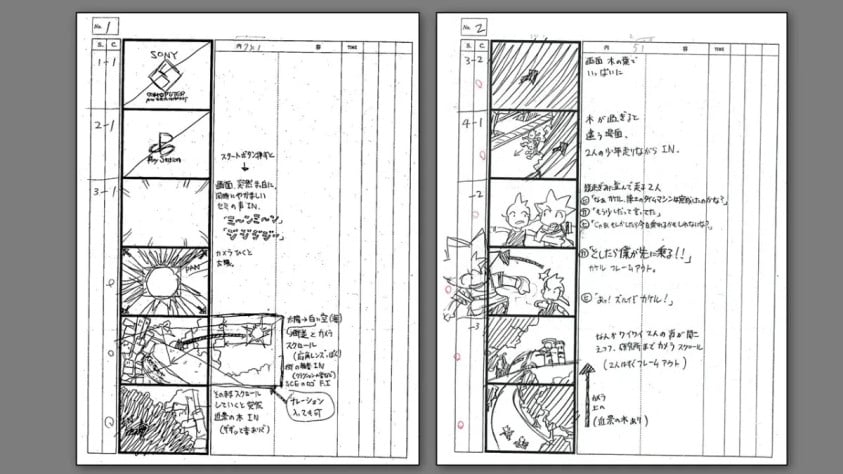 No. 1
S. C. 内 容 TIME
1-1
SONY
COMPUTER
ENTERTAINMENT
2-1
PlayStation
スタートボタン押すと
3-1
画面、突然 水色に、
同時にやかましい
セミの声 IN.
「ミ〜ンミ〜ン」
「ジジジジジ〜」
カメラひくと
太陽。
PAN
太陽→白い空(雲)
→街並とカメラ
スクロール
(広角レンズっぽく)
街の雑音 IN
(クラクションの音など)
SCEのロゴ F.I
そのままスクロール
していくと突然
近景の木 IN
ナレーション
入っても可
No. 2
S. C. 内 容 TIME
3-2
画面 木の葉で
いっぱいに
4-1
木が過ぎると
違う場面。
2人の少年走りながら IN.
-2
「なぁカケル、博士のタイムマシンは完成したのかな?」
「もう少しだって言ってた」
「じゃあもしかしたら今日乗れるかもしれないな?」
「そしたら僕が先に乗る!!」
カケル フレームアウト。
「あっ! ズルイゾ カケル!」
-3
なんかワイワイ 2人の声が聞こ
えつつ、研究所まで カメラ スクロール
(2人はすぐフレームアウト)
カメラ
上の
(近景の木あり)